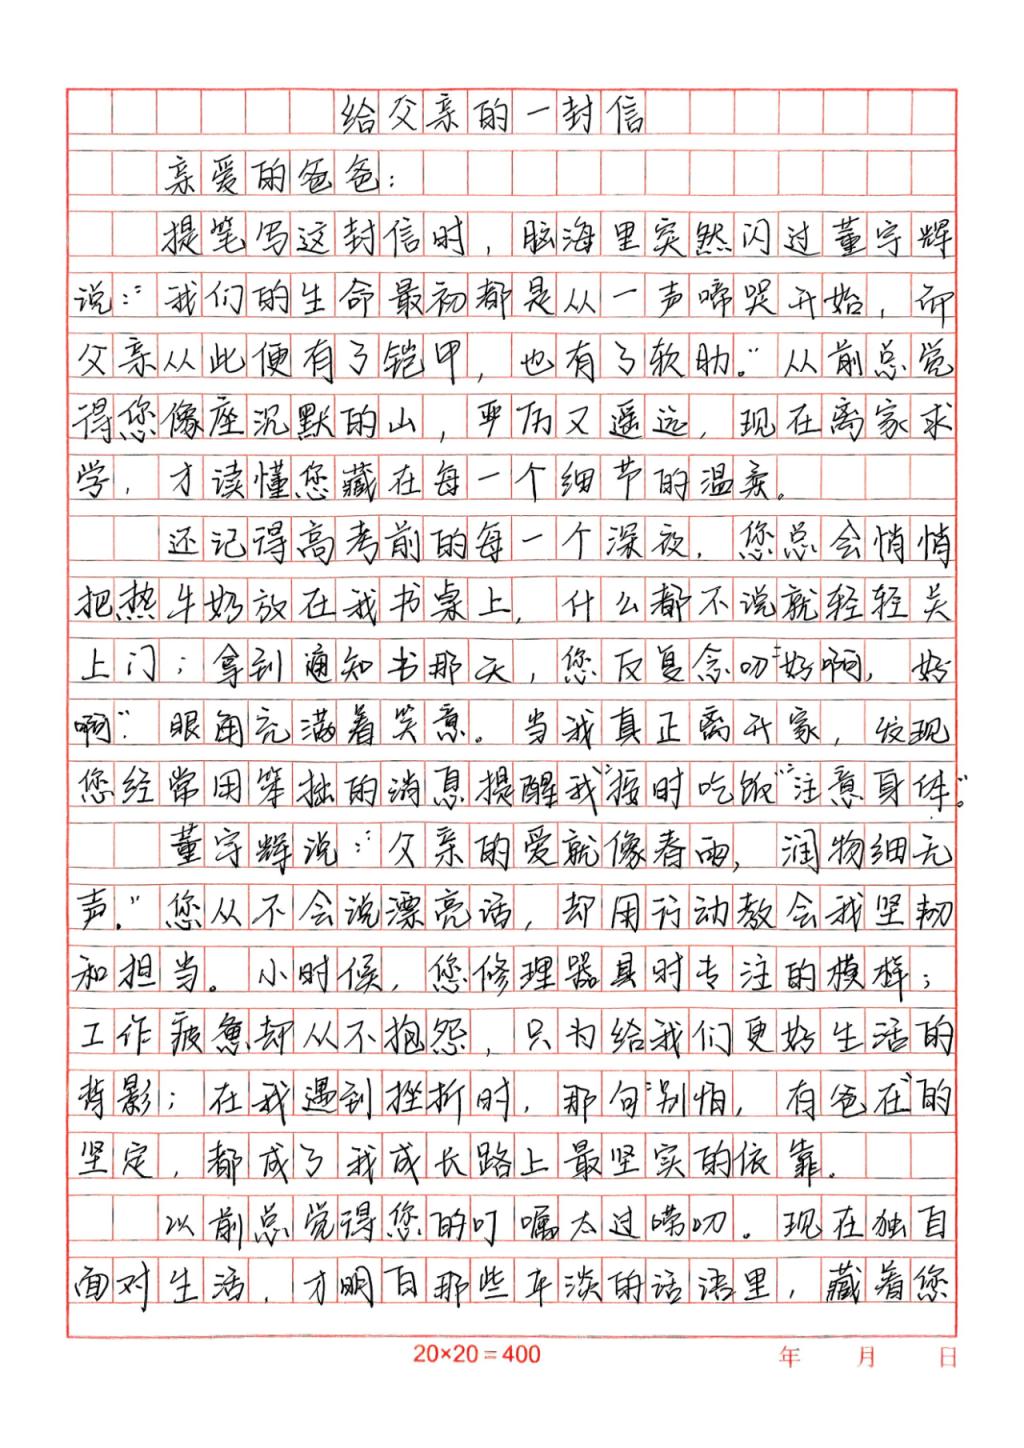 给父亲的一封信
亲爱的爸爸：
提笔写这封信时，脑海里突然闪过董宇辉
说：“我们的生命最初都是从一声啼哭开始，而
父亲从此便有了铠甲，也有了软肋。”从前总觉
得您像座沉默的山，严厉又遥远，现在离家求
学，才读懂您藏在每一个细节的温柔。
还记得高考前的每一个深夜，您总会悄悄
把热牛奶放在我书桌上，什么都不说就轻轻关
上门；拿到通知书那天，您反复念叨“好啊，好
啊”眼角充满着笑意。当我真正离开家，发现
您经常用笨拙的消息提醒我“按时吃饭”“注意身体”。
董宇辉说：“父亲的爱就像春雨，润物细无
声。”您从不会说漂亮话，却用行动教会我坚韧
和担当。小时候，您修理器具时专注的模样；
工作疲惫却从不抱怨，只为给我们更好生活的
背影；在我遇到挫折时，那句“别怕，有爸在”的
坚定，都成了我成长路上最坚实的依靠。
以前总觉得您的叮嘱太过唠叨。现在独自
面对生活，才明白那些平淡的话语里，藏着您
20×20=400
年 月 日